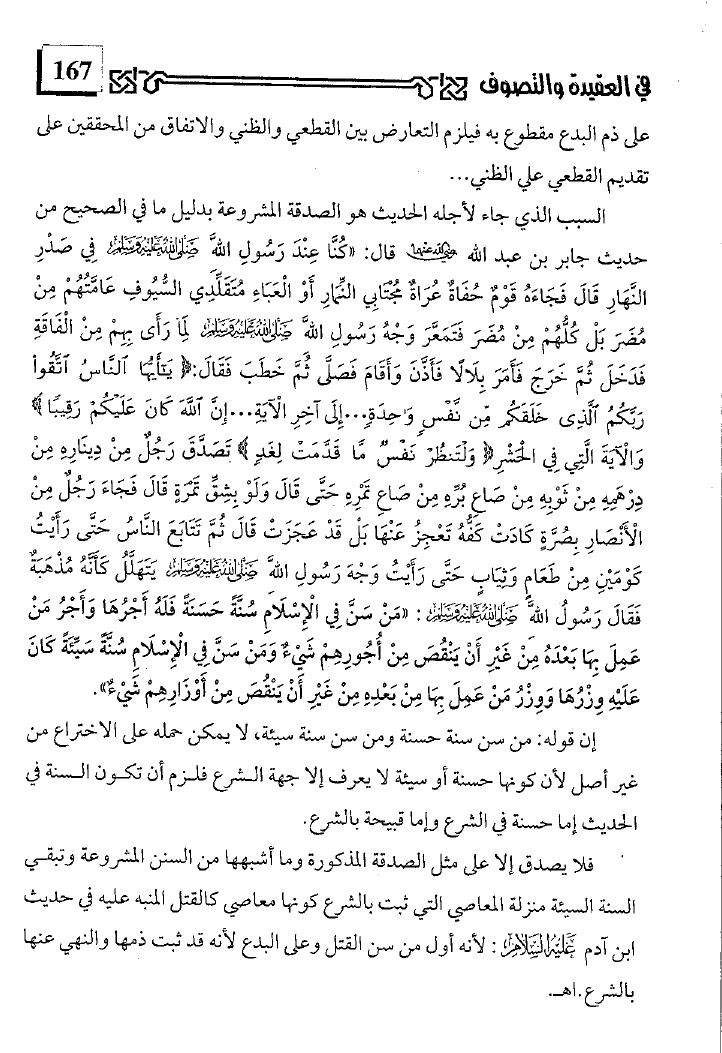 في العقيدة والتصوف 167
على ذم البدع مقطوع به فيلزم التعارض بين القطعي والظني والاتفاق من المحققين على
تقديم القطعي علي الظني...
السبب الذي جاء لأجله الحديث هو الصدقة المشروعة بدليل ما في الصحيح من
حديث جابر بن عبد الله رضي الله عنهما قال: «كُنَّا عِنْدَ رَسُولِ اللهَِّ صلى الله عليه وسلم فِي صَدْرِ
النَّهَارِ قَالَ فَجَاءَهُ قَوْمٌ حُفَاةٌ عُرَاةٌ مُجْتَابِي النِّمَارِ أَوْ الْعَبَاءِ مُتَقَلِّدِي السُّيُوفِ عَامَّتُهُمْ مِنْ
مُضَرَ بَلْ كُلُّهُمْ مِنْ مُضَرَ فَتَمَعَّرَ وَجْهُ رَسُولِ اللهَِّ صلى الله عليه وسلم لِمَا رَأَى بِهِمْ مِنْ الْفَاقَةِ
فَدَخَلَ ثُمَّ خَرَجَ فَأَمَرَ بِلَالًا فَأَذَّنَ وَأَقَامَ فَصَلَّى ثُمَّ خَطَبَ فَقَالَ:﴿ يَٰٓأَيُّهَا ٱلنَّاسُ ٱتَّقُوا۟
رَبَّكُمُ ٱلَّذِى خَلَقَكُم مِّن نَّفْسٍ وَٰحِدَةٍ...إِلَى آخِرِ الْآيَةِ...إِنَّ ٱللَّهَ كَانَ عَلَيْكُمْ رَقِيبًا﴾
وَالْآيَةَ الَّتِي فِي الْحَشْرِ﴿ وَلْتَنظُرْ نَفْسٌ مَّا قَدَّمَتْ لِغَدٍ ﴾ تَصَدَّقَ رَجُلٌ مِنْ دِينَارِهِ مِنْ
دِرْهَمِهِ مِنْ ثَوْبِهِ مِنْ صَاعِ بُرِّهِ مِنْ صَاعِ تَمْرِهِ حَتَّى قَالَ وَلَوْ بِشِقِّ تَمْرَةٍ قَالَ فَجَاءَ رَجُلٌ مِنْ
الْأَنْصَارِ بِصُرَّةٍ كَادَتْ كَفُّهُ تَعْجِزُ عَنْهَا بَلْ قَدْ عَجَزَتْ قَالَ ثُمَّ تَتَابَعَ النَّاسُ حَتَّى رَأَيْتُ
كَوْمَيْنِ مِنْ طَعَامٍ وَثِيَابٍ حَتَّى رَأَيْتُ وَجْهَ رَسُولِ اللهَِّ صلى الله عليه وسلم يَتَهَلَّلُ كَأَنَّهُ مُذْهَبَةٌ
فَقَالَ رَسُولُ اللهَِّ صلى الله عليه وسلم : «مَنْ سَنَّ فِي الْإِسْلَامِ سُنَّةً حَسَنَةً فَلَهُ أَجْرُهَا وَأَجْرُ مَنْ
عَمِلَ بِهَا بَعْدَهُ مِنْ غَيْرِ أَنْ يَنْقُصَ مِنْ أُجُورِهِمْ شَيْءٌ وَمَنْ سَنَّ فِي الْإِسْلَامِ سُنَّةً سَيِّئَةً كَانَ
عَلَيْهِ وِزْرُهَا وَوِزْرُ مَنْ عَمِلَ بِهَا مِنْ بَعْدِهِ مِنْ غَيْرِ أَنْ يَنْقُصَ مِنْ أَوْزَارِهِمْ شَيْءٌ».
إن قوله: من سن سنة حسنة ومن سن سنة سيئة، لا يمكن حمله على الاختراع من
غير أصل لأن كونها حسنة أو سيئة لا يعرف إلا جهة الشرع فلزم أن تكون السنة في
الحديث إما حسنة في الشرع وإما قبيحة بالشرع.
فلا يصدق إلا على مثل الصدقة المذكورة وما أشبهها من السنن المشروعة وتبقي
السنة السيئة منزلة المعاصي التي ثبت بالشرع كونها معاصي كالقتل المنبه عليه في حديث
ابن آدم عليه السلام : لأنه أول من سن القتل وعلى البدع لأنه قد ثبت ذمها والنهي عنها
بالشرع.اهـ.